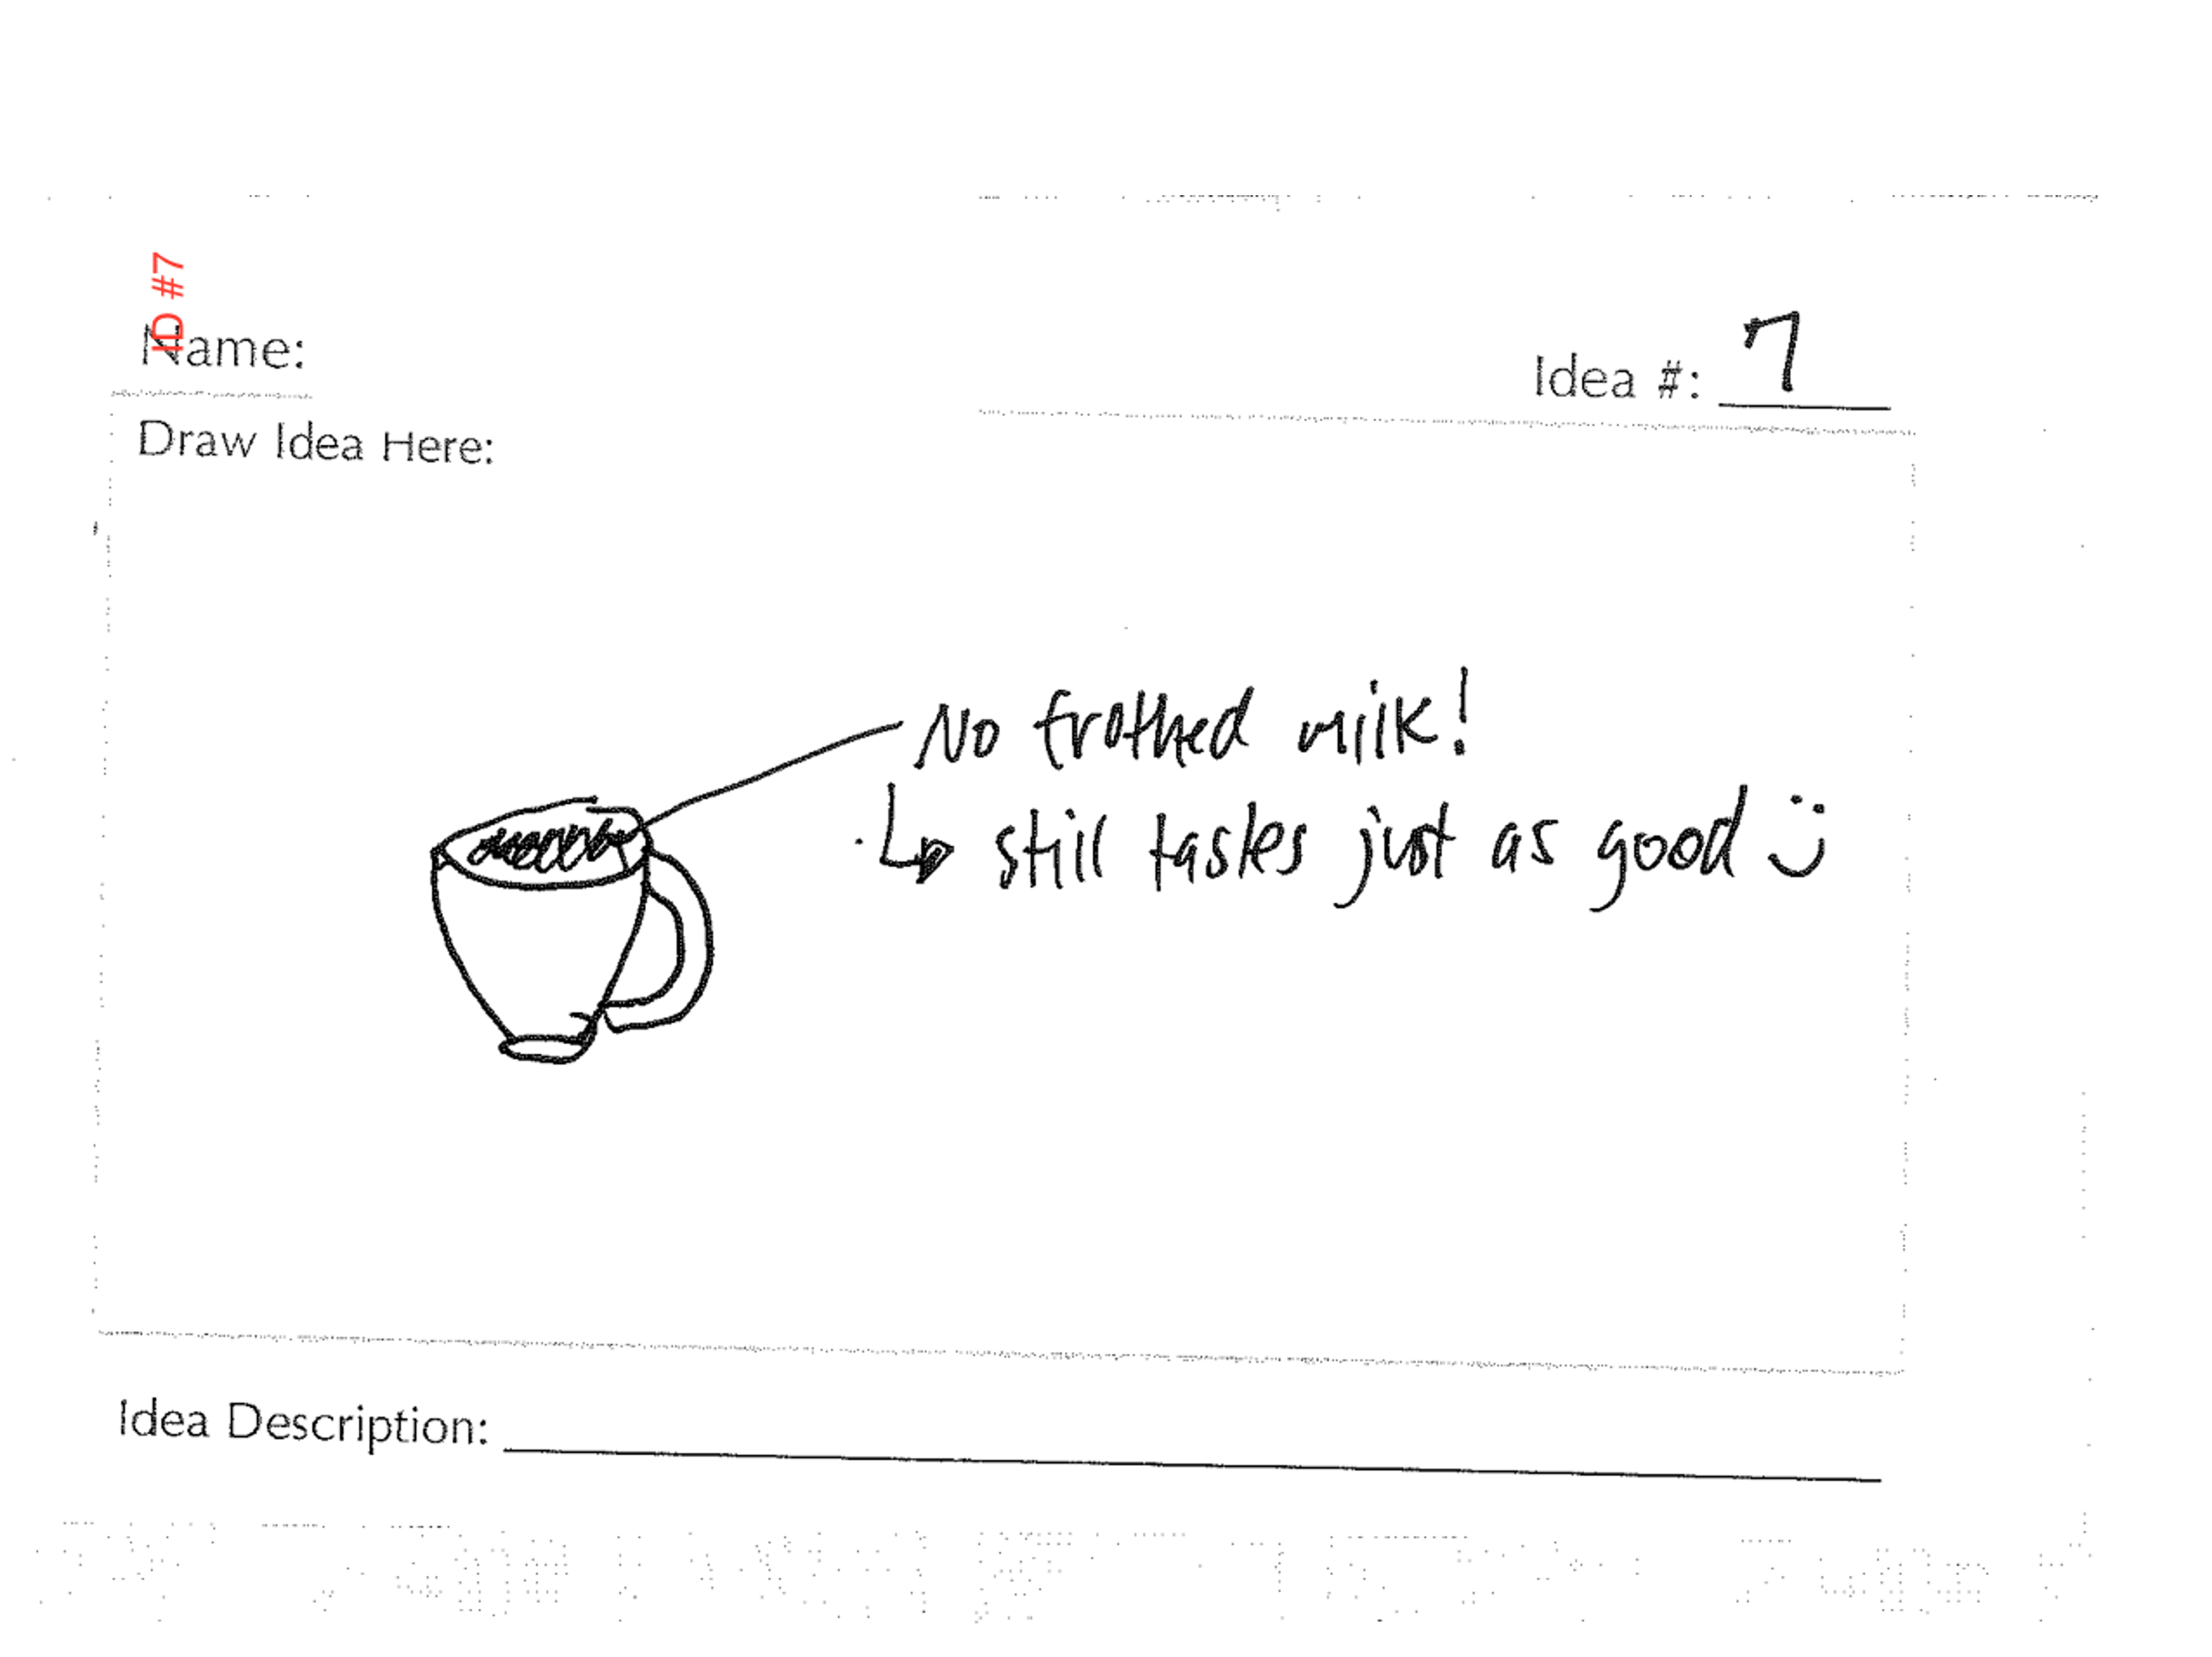 ID #7
Name:
Idea #: 7
Draw Idea Here:
No frothed milk!
still tastes just as good
Idea Description: